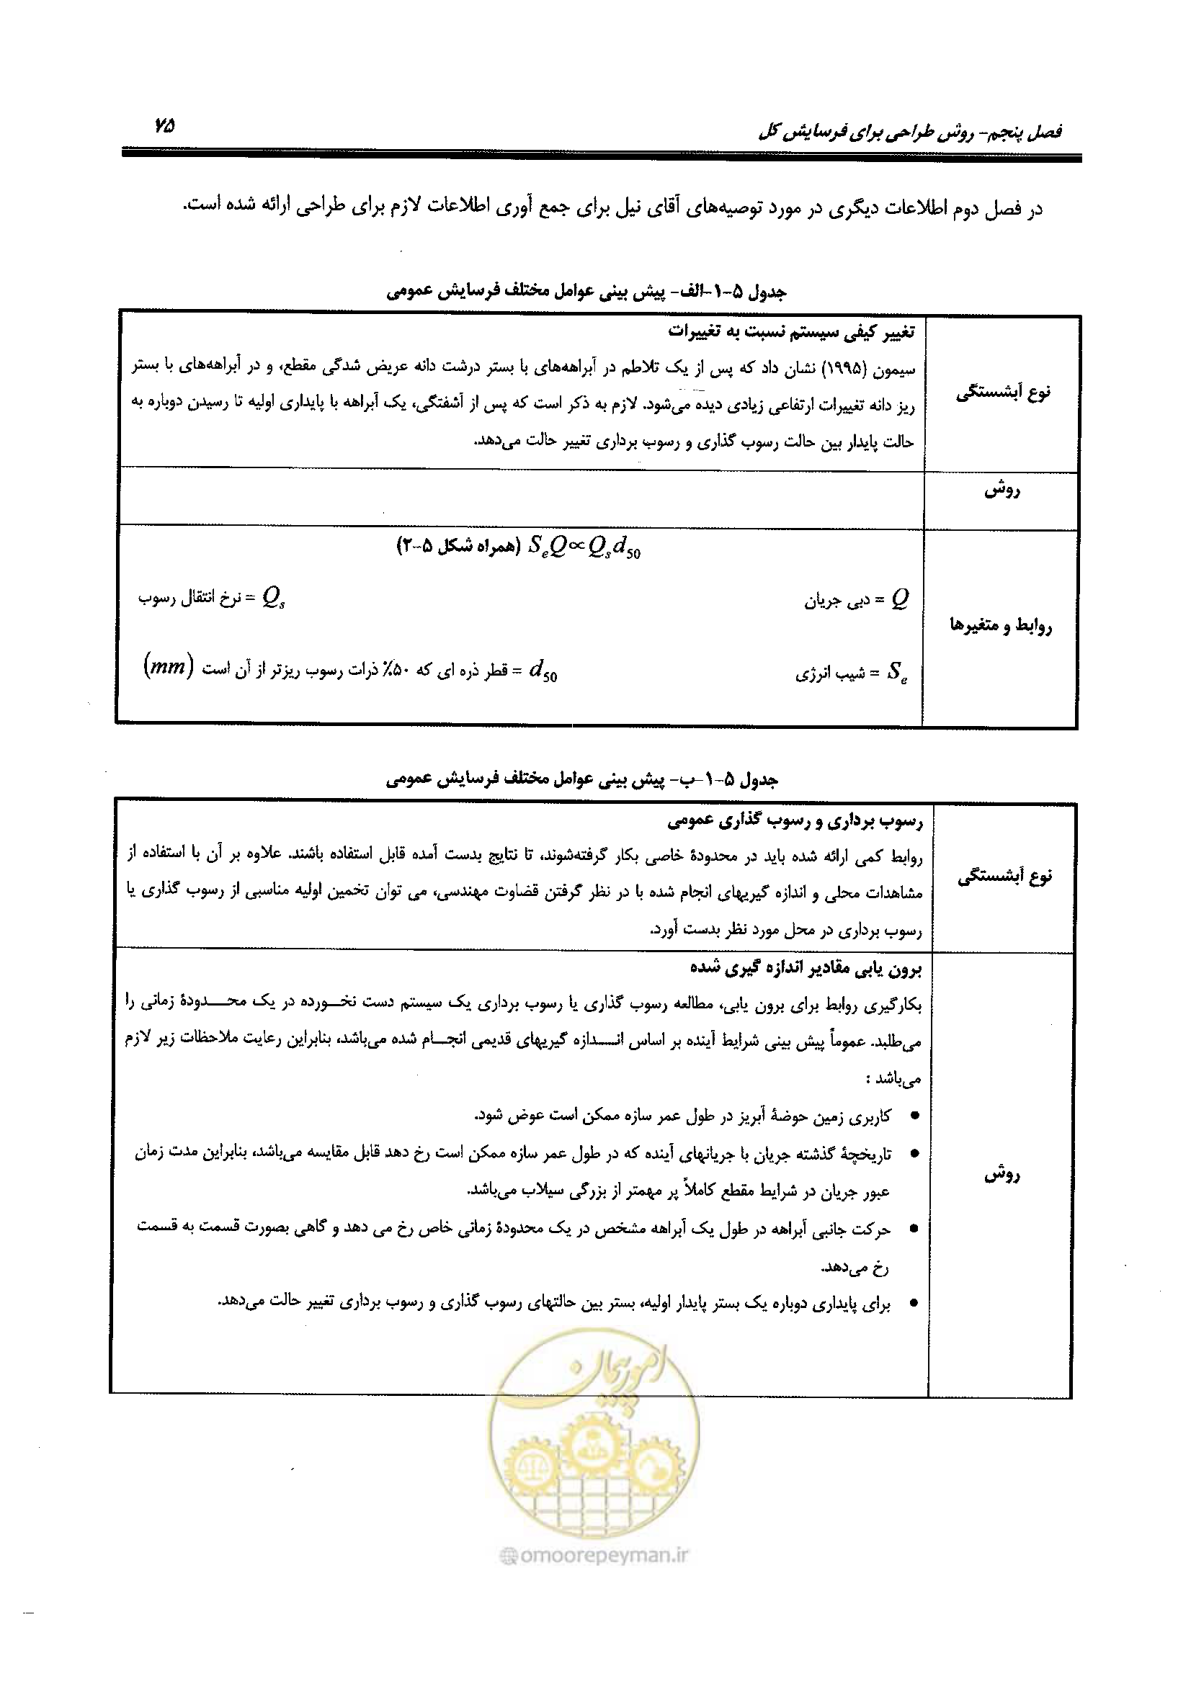 فصل پنجم- روش طراحی برای فرسایش کل
۷۵
در فصل دوم اطلاعات دیگری در مورد توصیه‌های آقای نیل برای جمع آوری اطلاعات لازم برای طراحی ارائه شده است.
جدول ۵-۱-الف- پیش بینی عوامل مختلف فرسایش عمومی
نوع آبشستگی
تغییر کیفی سیستم نسبت به تغییرات
سیمون (۱۹۹۵) نشان داد که پس از یک تلاطم در آبراهه‌های با بستر درشت دانه عریض شدگی مقطع، و در آبراهه‌های با بستر
ریز دانه تغییرات ارتفاعی زیادی دیده می‌شود. لازم به ذکر است که پس از آشفتگی، یک آبراهه با پایداری اولیه تا رسیدن دوباره به
حالت پایدار بین حالت رسوب گذاری و رسوب برداری تغییر حالت می‌دهد.
روش
روابط و متغیرها
SeQ∝Qsd50 (همراه شکل ۵-۲)
Q = دبی جریان
Qs = نرخ انتقال رسوب
Se = شیب انرژی
d50 = قطر ذره ای که ۵۰٪ ذرات رسوب ریزتر از آن است (mm)
جدول ۵-۱-ب- پیش بینی عوامل مختلف فرسایش عمومی
نوع آبشستگی
رسوب برداری و رسوب گذاری عمومی
روابط کمی ارائه شده باید در محدودهٔ خاصی بکار گرفته‌شوند، تا نتایج بدست آمده قابل استفاده باشند. علاوه بر آن با استفاده از
مشاهدات محلی و اندازه گیریهای انجام شده با در نظر گرفتن قضاوت مهندسی، می توان تخمین اولیه مناسبی از رسوب گذاری یا
رسوب برداری در محل مورد نظر بدست آورد.
روش
برون یابی مقادیر اندازه گیری شده
بکارگیری روابط برای برون یابی، مطالعه رسوب گذاری یا رسوب برداری یک سیستم دست نخـورده در یک محـدودهٔ زمانی را
می‌طلبد. عموماً پیش بینی شرایط آینده بر اساس انـدازه گیریهای قدیمی انجـام شده می‌باشد، بنابراین رعایت ملاحظات زیر لازم
می‌باشد :
• کاربری زمین حوضهٔ آبریز در طول عمر سازه ممکن است عوض شود.
• تاریخچهٔ گذشته جریان با جریانهای آینده که در طول عمر سازه ممکن است رخ دهد قابل مقایسه می‌باشد، بنابراین مدت زمان
عبور جریان در شرایط مقطع کاملاً پر مهمتر از بزرگی سیلاب می‌باشد.
• حرکت جانبی آبراهه در طول یک آبراهه مشخص در یک محدودهٔ زمانی خاص رخ می دهد و گاهی بصورت قسمت به قسمت
رخ می‌دهد.
• برای پایداری دوباره یک بستر پایدار اولیه، بستر بین حالتهای رسوب گذاری و رسوب برداری تغییر حالت می‌دهد.
امور پیمان
omoorepeyman.ir